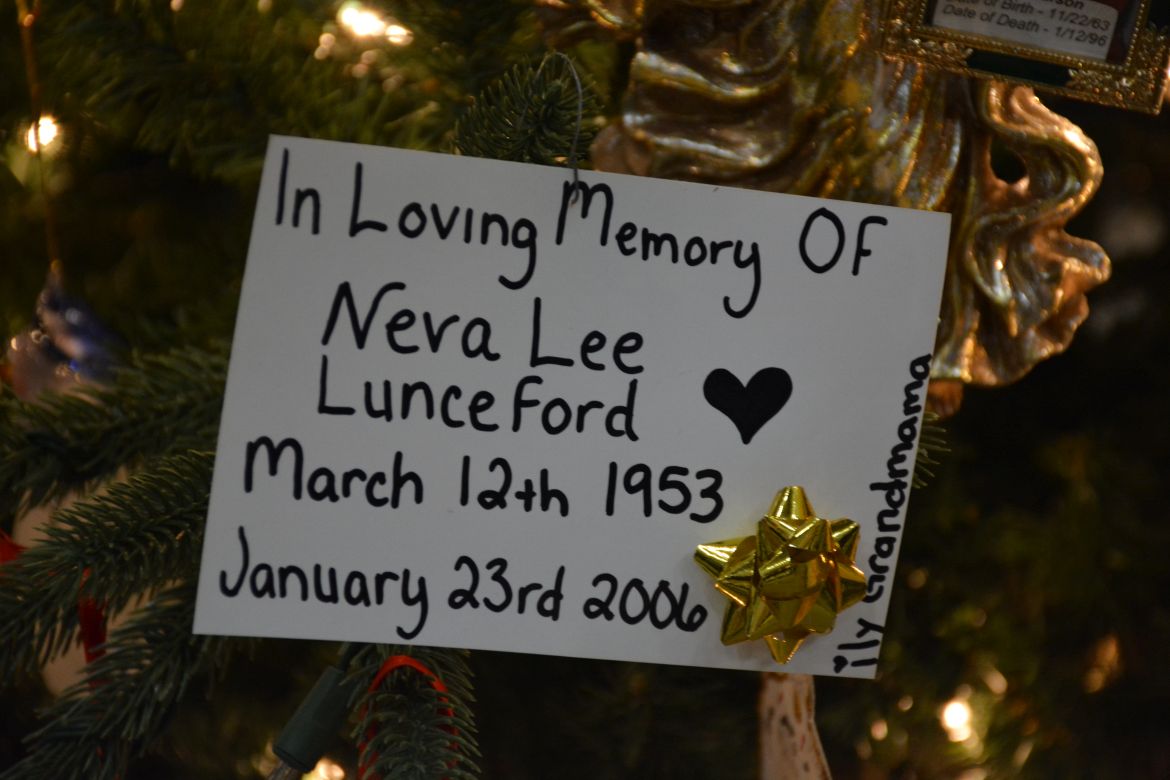 In Loving Memory Of
Neva Lee
Lunceford
March 12th 1953
January 23rd 2006
ily Grandmama
Date of Birth - 11/22/63
Date of Death - 1/12/96